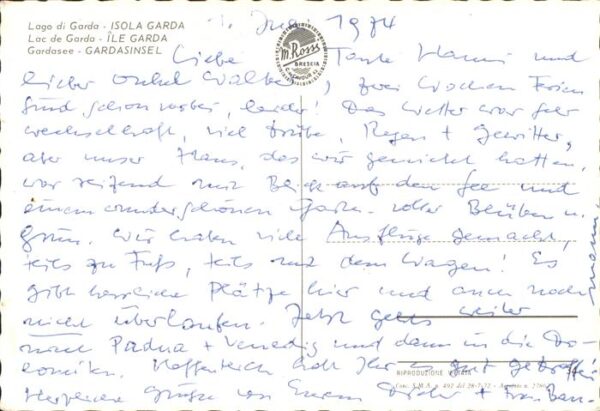 Lago di Garda - ISOLA GARDA
Lac de Garda - ÎLE GARDA
Gardasee - GARDASINSEL
1974
M. Rossi
BRESCIA
Liebe Tante Hanni und
lieber Onkel Walter, zwei Wochen Ferien
sind schon vorbei, leider! Das Wetter war sehr
wechselhaft, viel trübe, Regen + Gewitter,
aber unser Haus, das wir gemietet hatten,
war reizend mit Blick auf den See und
einem wunderschönen Garten voller Blüten u.
Grün. Wir haben viele Ausflüge gemacht,
teils zu Fuß, teils mit dem Wagen! Es
gibt herrliche Plätze hier und auch noch
nicht überlaufen. Jetzt geht's weiter
nach Padua + Venedig und dann in die Do-
lomiten. Hoffentlich habt Ihr es gut getroffen
Herzliche Grüße von Eurem + Frau
RIPRODUZIONE VIETATA